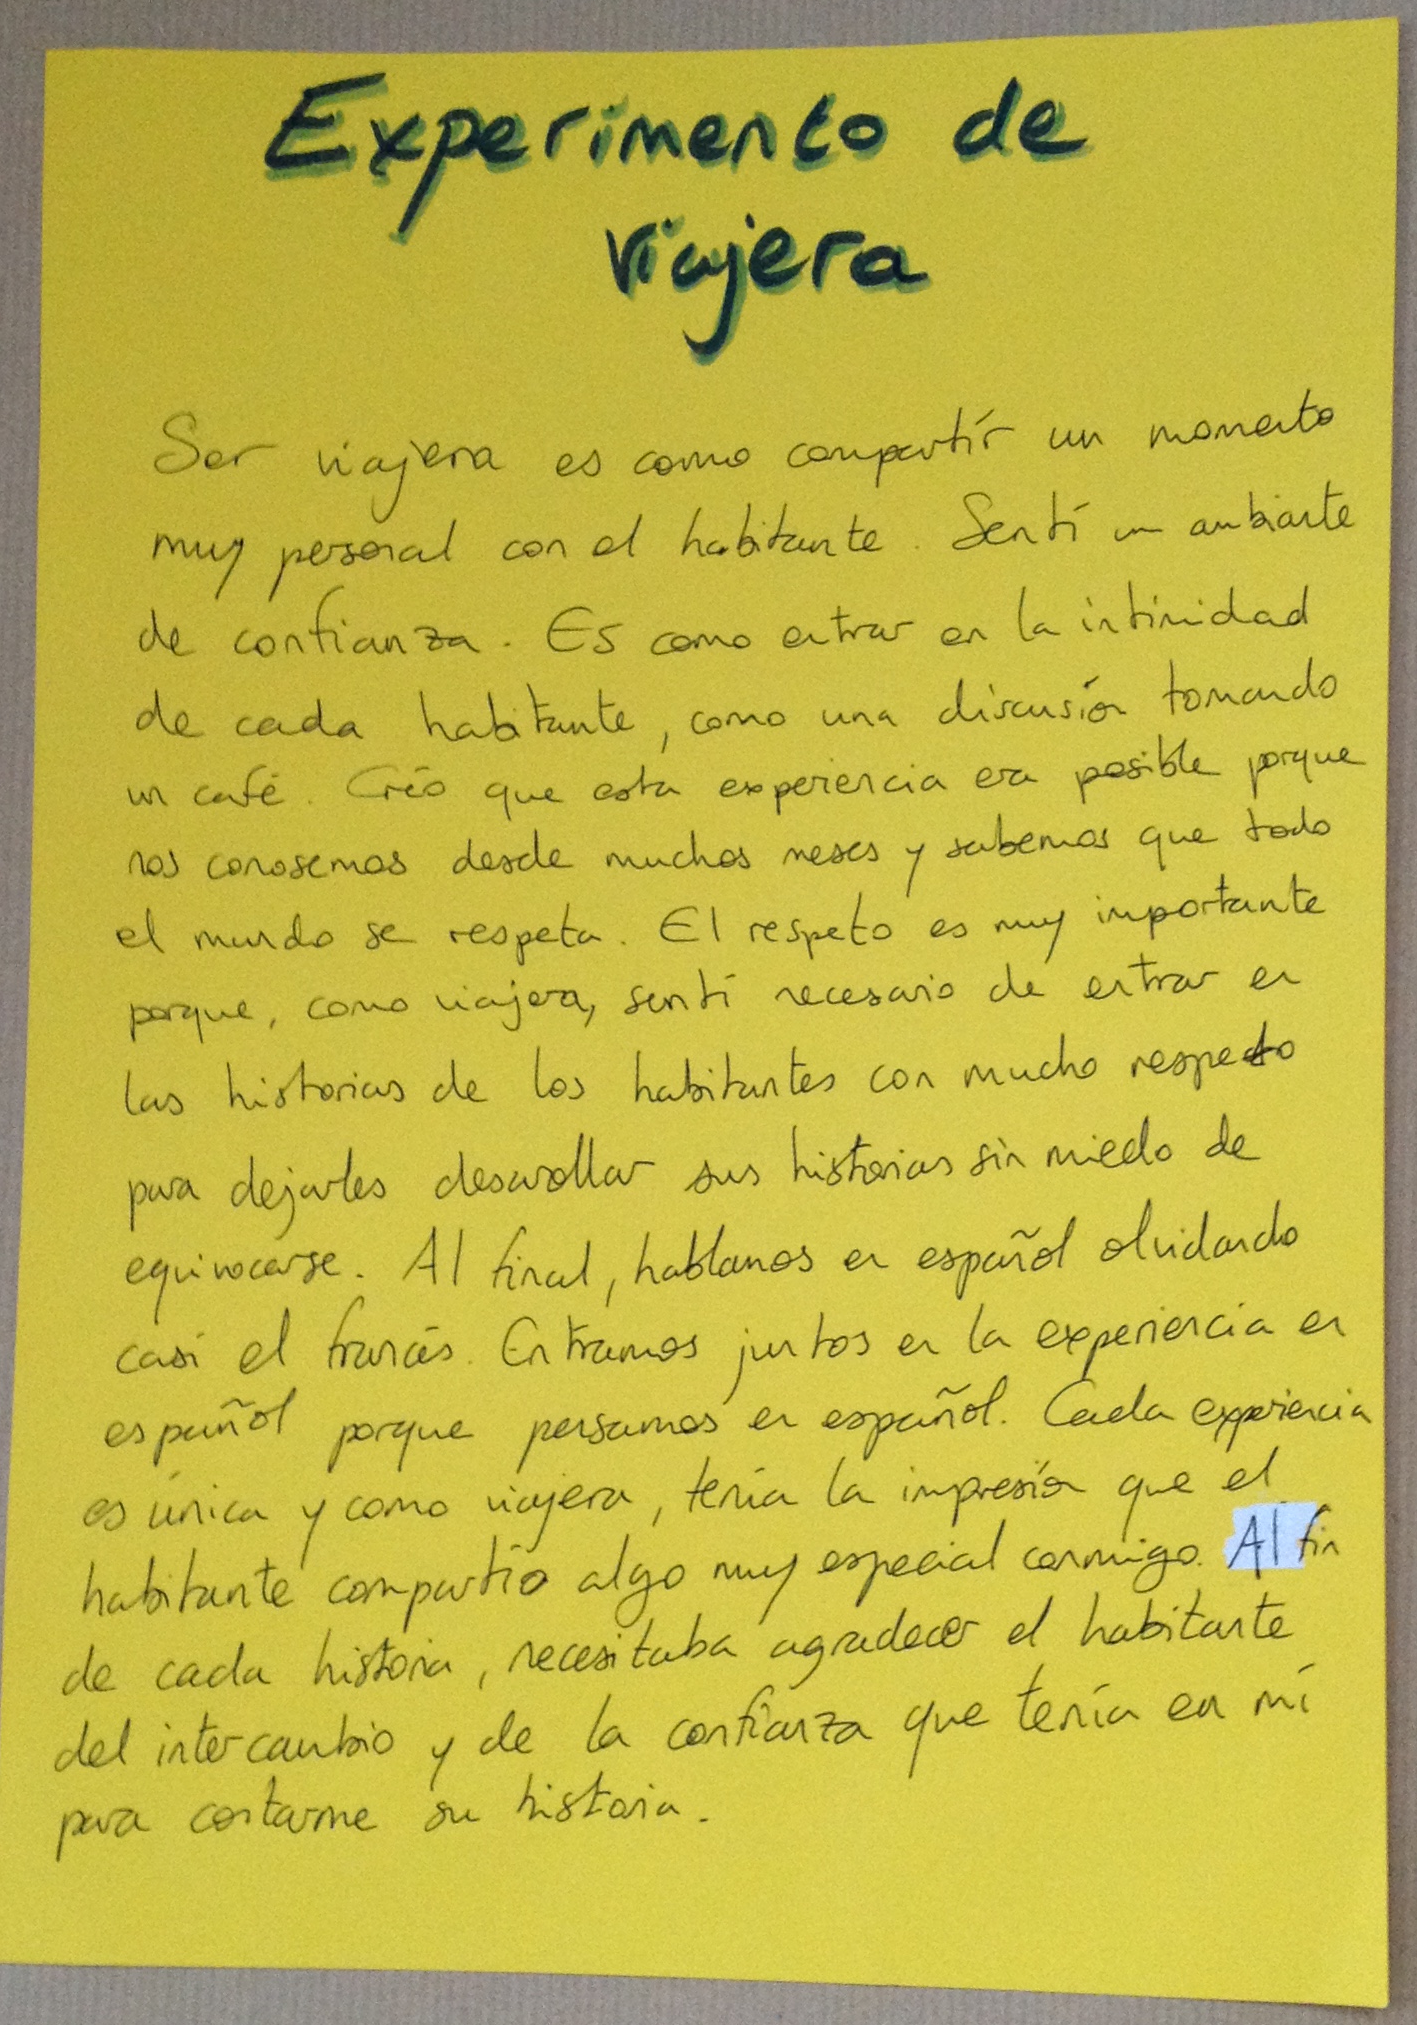 Experimento de
viajera
Ser viajera es como compartír un momento
muy personal con el habitante. Sentí un ambiante
de confianza. Es como entrar en la intimidad
de cada habitante, como una discusión tomando
un café. Créo que esta experiencia era posible porque
nos conosemos desde muchos meses y sabemos que todo
el mundo se respeta. El respeto es muy importante
porque, como viajera, sentí necesario de entrar en
las historias de los habitantes con mucho respecto
para dejarles desarollar sus historias sin miedo de
equivocarse. Al final, hablamos en español olvidando
casi el francés. Entramos juntos en la experiencia en
español porque pensamos en español. Cada experiencia
es única y como viajera, tenía la impresión que el
habitante compartío algo muy especial conmigo. Al fin
de cada historia, necesitaba agradecer el habitante
del intercambio y de la confianza que tenía en mí
para contarme su historia.